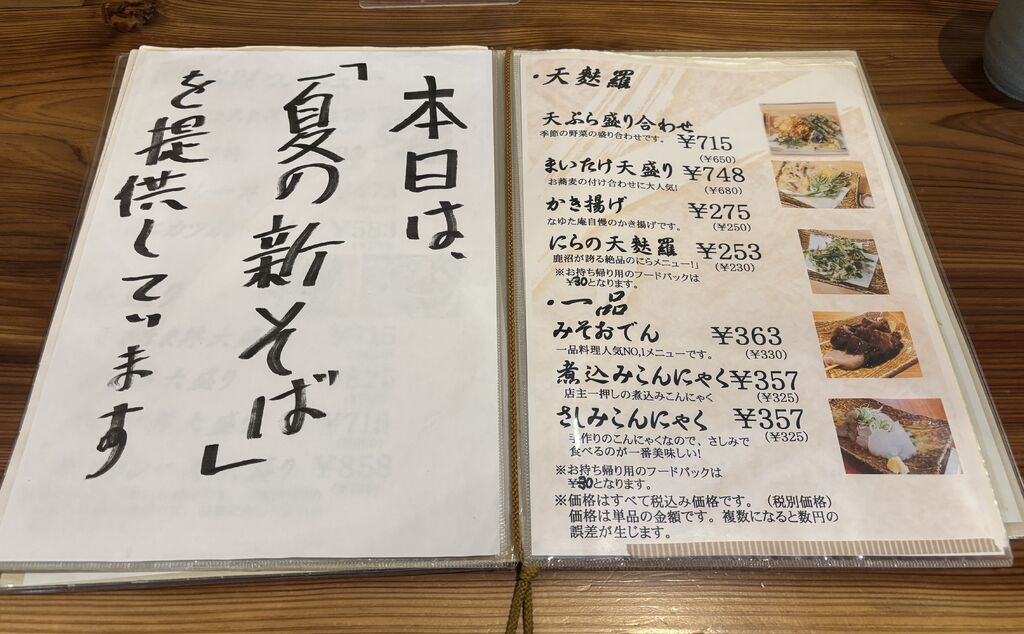 本日は、
「夏の新そば」
を提供しています
・天麩羅
天ぷら盛り合わせ
季節の野菜の盛り合わせです。 ¥715
(¥650)
まいたけ天盛り ¥748
お蕎麦の付け合わせに大人気! (¥680)
かき揚げ ¥275
なゆた庵自慢のかき揚げです。 (¥250)
にらの天麩羅 ¥253
鹿沼が誇る絶品のにらメニュー!」 (¥230)
※お持ち帰り用のフードパックは
¥30となります。
・一品
みそおでん ¥363
一品料理人気NO,1メニューです。 (¥330)
煮込みこんにゃく ¥357
店主一押しの煮込みこんにゃく (¥325)
さしみこんにゃく ¥357
手作りのこんにゃくなので、さしみで (¥325)
食べるのが一番美味しい!
※お持ち帰り用のフードパックは
¥30となります。
※価格はすべて税込み価格です。(税別価格)
価格は単品の金額です。複数になると数円の
誤差が生じます。